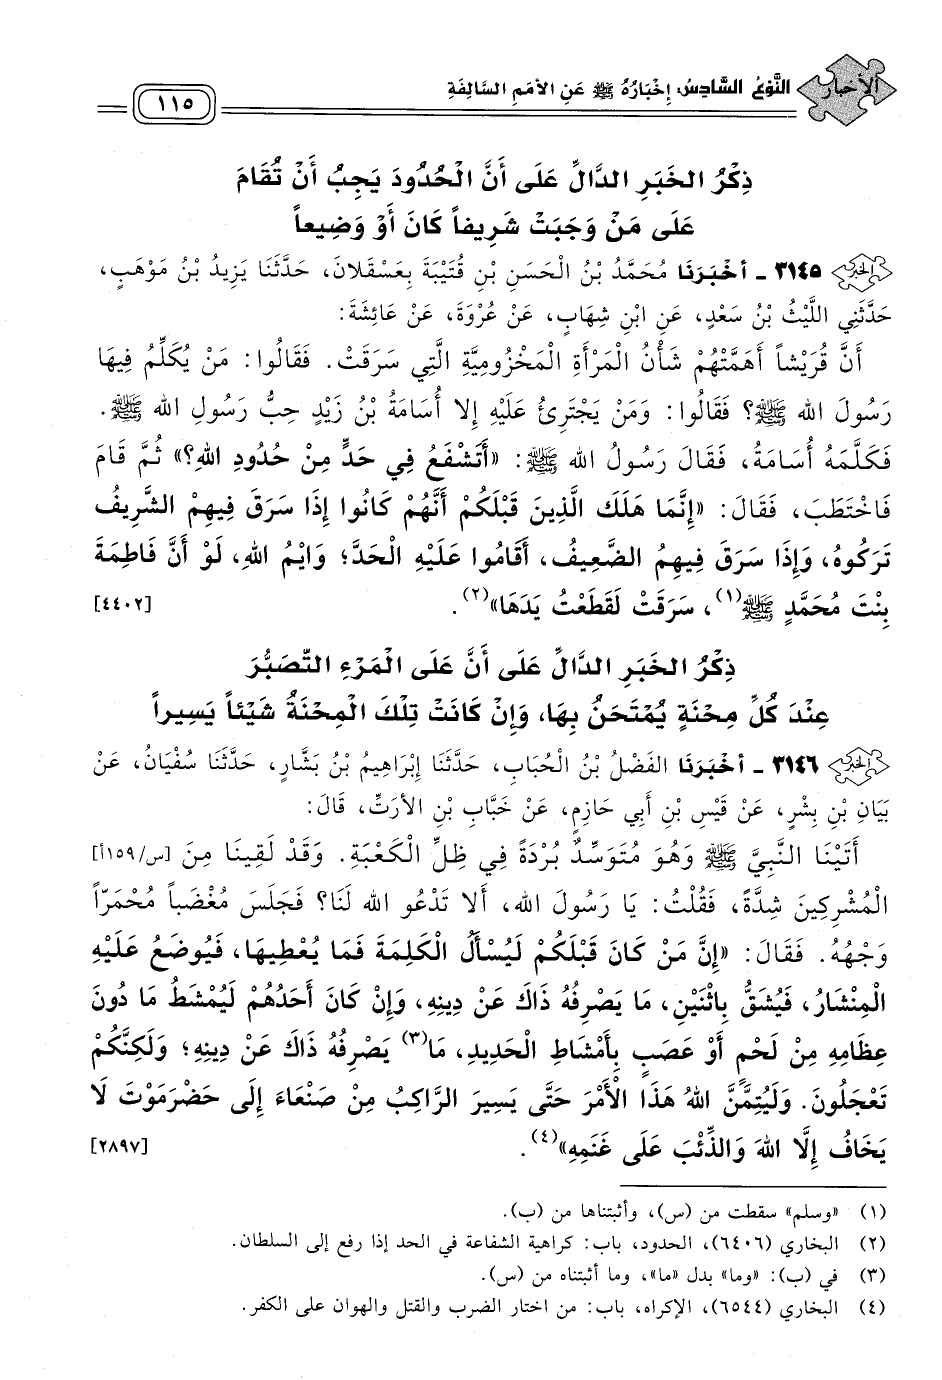 الأخبار النَّوْعُ السَّادِسُ: إخْبَارُهُ ﷺ عَنِ الأمَمِ السَّالِفَةِ ١١٥
ذِكْرُ الخَبَرِ الدَّالِّ عَلَى أَنَّ الْحُدُودَ يَجِبُ أَنْ تُقَامَ
عَلَى مَنْ وَجَبَتْ شَرِيفاً كَانَ أَوْ وَضِيعاً
٣١٤٥ - أخْبَرَنَا مُحَمَّدُ بْنُ الْحَسَنِ بْنِ قُتَيْبَةَ بِعَسْقَلانَ، حَدَّثَنَا يَزِيدُ بْنُ مَوْهَبٍ،
حَدَّثَنِي اللَّيْثُ بْنُ سَعْدٍ، عَنِ ابْنِ شِهَابٍ، عَنْ عُرْوَةَ، عَنْ عَائِشَةَ:
أَنَّ قُرَيْشاً أَهَمَّتْهُمْ شَأْنُ الْمَرْأَةِ الْمَخْزُومِيَّةِ الَّتِي سَرَقَتْ. فَقَالُوا: مَنْ يُكَلِّمُ فِيهَا
رَسُولَ الله ﷺ؟ فَقَالُوا: وَمَنْ يَجْتَرِئُ عَلَيْهِ إلا أُسَامَةُ بْنُ زَيْدٍ حِبُّ رَسُولِ الله ﷺ.
فَكَلَّمَهُ أُسَامَةُ، فَقَالَ رَسُولُ الله ﷺ: «أَتَشْفَعُ فِي حَدٍّ مِنْ حُدُودِ اللهِ؟» ثُمَّ قَامَ
فَاخْتَطَبَ، فَقَالَ: «إِنَّمَا هَلَكَ الَّذِينَ قَبْلَكُمْ أَنَّهُمْ كَانُوا إِذَا سَرَقَ فِيهِمْ الشَّرِيفُ
تَرَكُوهُ، وَإِذَا سَرَقَ فِيهِمُ الضَّعِيفُ، أَقَامُوا عَلَيْهِ الْحَدَّ؛ وَايْمُ اللهِ، لَوْ أَنَّ فَاطِمَةَ
بِنْتَ مُحَمَّدٍ ﷺ(١)، سَرَقَتْ لَقَطَعْتُ يَدَهَا»(٢). [٤٤٠٢]
ذِكْرُ الخَبَرِ الدَّالِّ عَلَى أَنَّ عَلَى الْمَرْءِ التَّصَبُّرَ
عِنْدَ كُلِّ مِحْنَةٍ يُمْتَحَنُ بِهَا، وَإِنْ كَانَتْ تِلْكَ الْمِحْنَةُ شَيْئاً يَسِيراً
٣١٤٦ - أخْبَرَنَا الفَضْلُ بْنُ الْحُبَابِ، حَدَّثَنَا إبْرَاهِيمُ بْنُ بَشَّارٍ، حَدَّثَنَا سُفْيَانُ، عَنْ
بَيَانِ بْنِ بِشْرٍ، عَنْ قَيْسِ بْنِ أَبِي حَازِمٍ، عَنْ خَبَّابِ بْنِ الأرَتِّ، قَالَ:
أَتَيْنَا النَّبِيَّ ﷺ وَهُوَ مُتَوَسِّدٌ بُرْدَةً فِي ظِلِّ الْكَعْبَةِ. وَقَدْ لَقِينَا مِنَ [س/١٥٩أ]
الْمُشْرِكِينَ شِدَّةً، فَقُلْتُ: يَا رَسُولَ الله، أَلا تَدْعُو الله لَنَا؟ فَجَلَسَ مُغْضَباً مُحْمَرّاً
وَجْهُهُ. فَقَالَ: «إِنَّ مَنْ كَانَ قَبْلَكُمْ لَيُسْأَلُ الْكَلِمَةَ فَمَا يُعْطِيهَا، فَيُوضَعُ عَلَيْهِ
الْمِنْشَارُ، فَيُشَقُّ بِاثْنَيْنِ، مَا يَصْرِفُهُ ذَاكَ عَنْ دِينِهِ، وَإِنْ كَانَ أَحَدُهُمْ لَيُمْشَطُ مَا دُونَ
عِظَامِهِ مِنْ لَحْمٍ أَوْ عَصَبٍ بِأَمْشَاطِ الْحَدِيدِ، مَا(٣) يَصْرِفُهُ ذَاكَ عَنْ دِينِهِ؛ وَلَكِنَّكُمْ
تَعْجَلُونَ. وَلَيُتِمَّنَّ اللهُ هَذَا الْأَمْرَ حَتَّى يَسِيرَ الرَّاكِبُ مِنْ صَنْعَاءَ إِلَى حَضْرَمَوْتَ لَا
يَخَافُ إِلَّا اللهَ وَالذِّئْبَ عَلَى غَنَمِهِ»(٤). [٢٨٩٧]
(١) «وسلم» سقطت من (س)، وأثبتناها من (ب).
(٢) البخاري (٦٤٠٦)، الحدود، باب: كراهية الشفاعة في الحد إذا رفع إلى السلطان.
(٣) في (ب): «وما» بدل «ما»، وما أثبتناه من (س).
(٤) البخاري (٦٥٤٤)، الإكراه، باب: من اختار الضرب والقتل والهوان على الكفر.